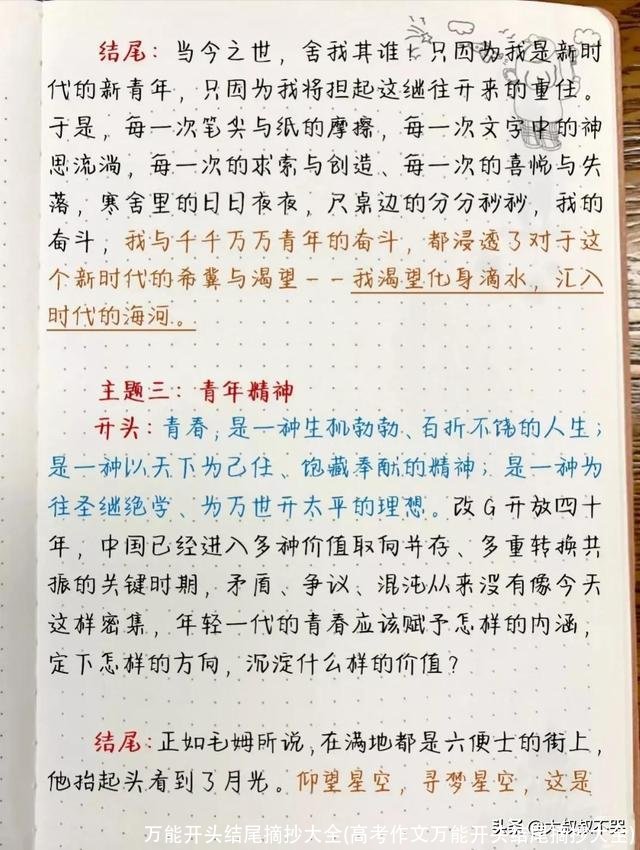 结尾：当今之世，舍我其谁！只因为我是新时
代的新青年，只因为我将担起这继往开来的重任。
于是，每一次笔尖与纸的摩擦，每一次文字中的神
思流淌，每一次的求索与创造、每一次的喜悦与失
落，寒舍里的日日夜夜，尺桌边的分分秒秒，我的
奋斗，我与千千万万青年的奋斗，都浸透了对于这
个新时代的希冀与渴望--我渴望化身滴水，汇入
时代的海河。。
主题三：青年精神
开头：青春，是一种生机勃勃、百折不饶的人生；
是一种以天下为己任、饱藏奉献的精神；是一种为
往圣继绝学、为万世开太平的理想。改G开放四十
年，中国已经进入多种价值取向并存、多重转换共
振的关键时期，矛盾、争议、混沌从来没有像今天
这样密集，年轻一代的青春应该赋予怎样的内涵，
定下怎样的方向，沉淀什么样的价值？
结尾：正如毛姆所说，在满地都是六便士的街上，
他抬起头看到了月光。仰望星空，寻梦星空，这是
头条@大叔叔不器
万能开头结尾摘抄大全(高考作文万能开头结尾摘抄大全)